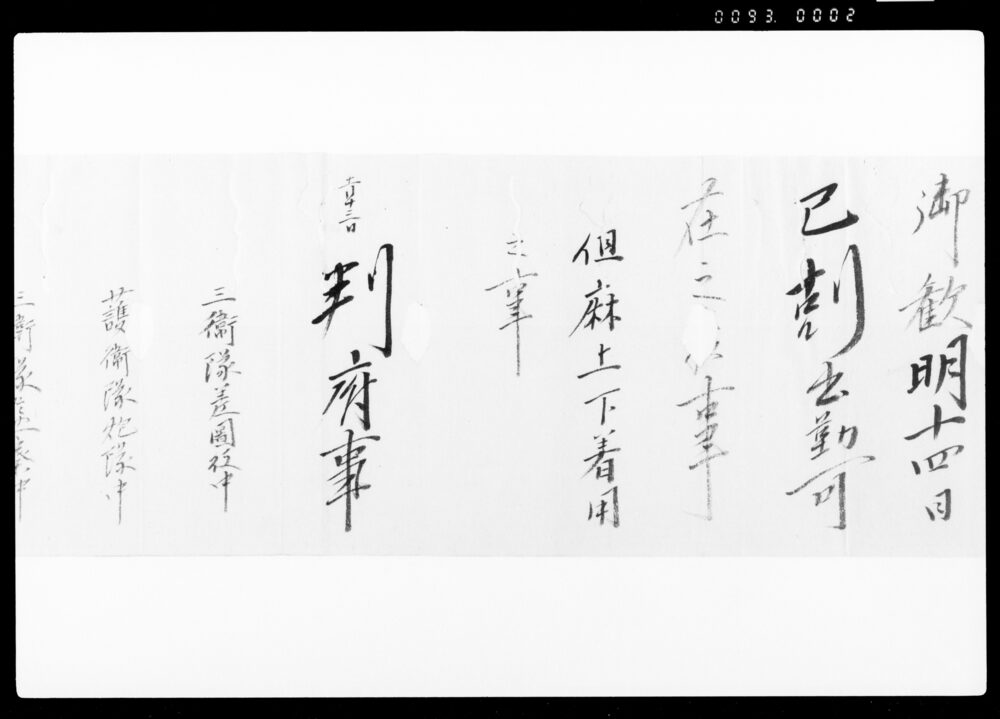 0093. 0002
御歓明十四日
巳刻出勤可
在之候事
但麻上下着用
之事
十二月十三日
判府事
三衛隊差図役中
護衛隊炮隊中
三衛隊